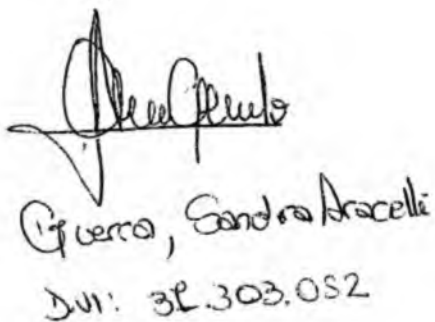 Guerra, Sandra Aracelli
DNI: 31.303.052